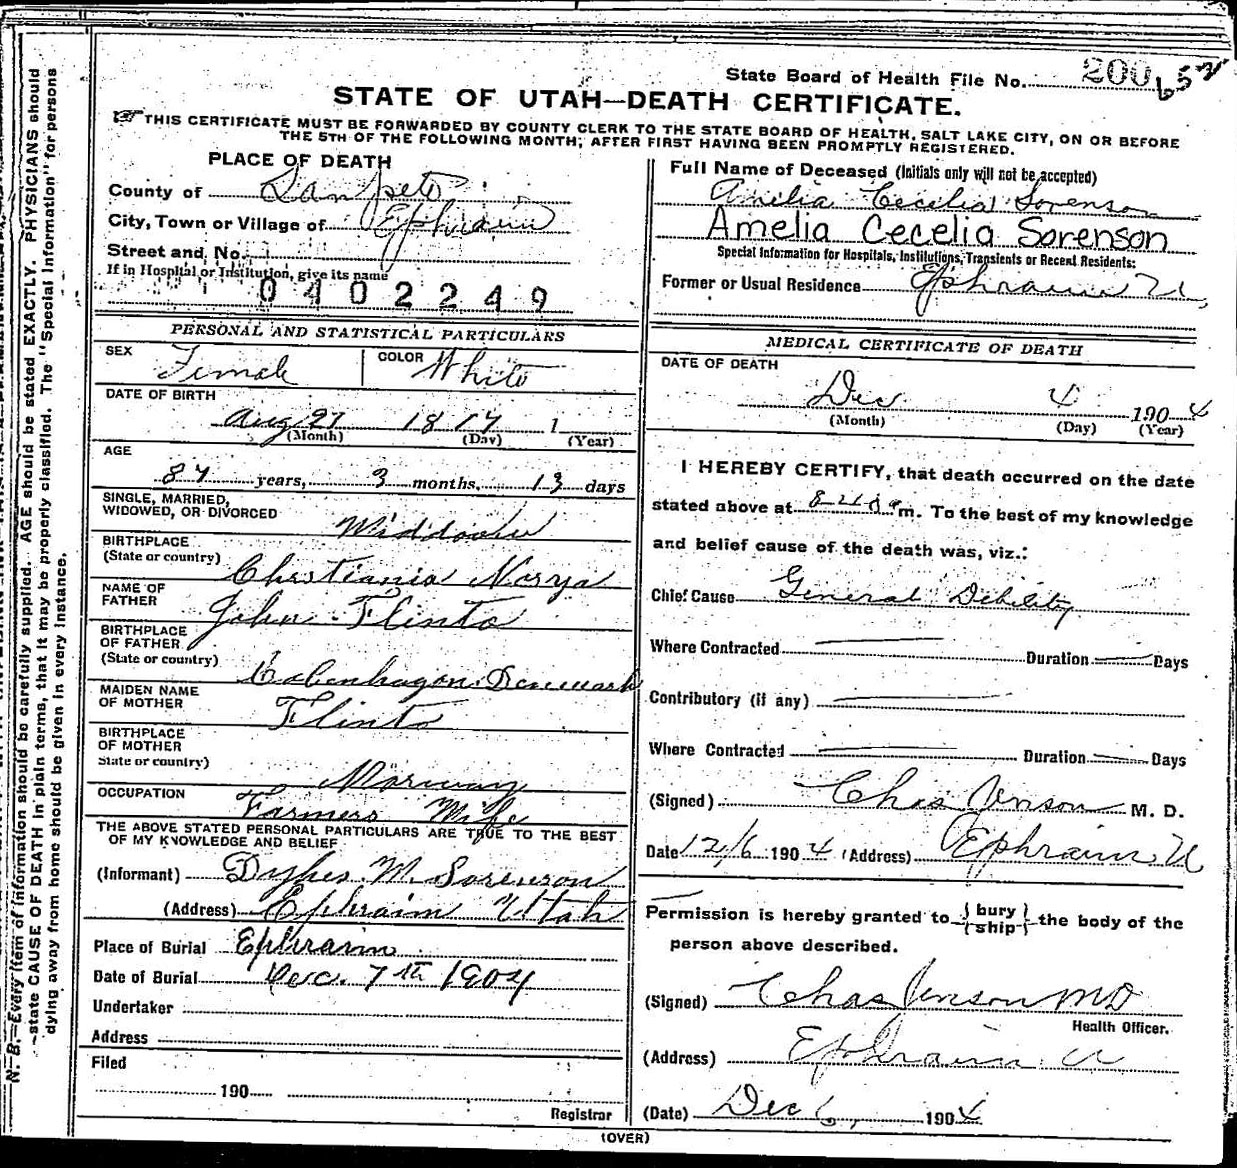 State Board of Health File No. 200 652
STATE OF UTAH—DEATH CERTIFICATE.
THIS CERTIFICATE MUST BE FORWARDED BY COUNTY CLERK TO THE STATE BOARD OF HEALTH, SALT LAKE CITY, ON OR BEFORE
THE 5TH OF THE FOLLOWING MONTH, AFTER FIRST HAVING BEEN PROMPTLY REGISTERED.
PLACE OF DEATH
County of Sanpete
City, Town or Village of Ephraim
Street and No.
If in Hospital or Institution, give its name
0402249
Full Name of Deceased (Initials only will not be accepted)
Amelia Cecelia Sorenson
Amelia Cecelia Sorenson
Special Information for Hospitals, Institutions, Transients or Recent Residents:
Former or Usual Residence Ephraim U
PERSONAL AND STATISTICAL PARTICULARS
SEX Female COLOR White
DATE OF BIRTH
Aug 27 1817 1
(Month) (Day) (Year)
AGE
87 years, 3 months, 13 days
SINGLE, MARRIED,
WIDOWED, OR DIVORCED
Widdow
BIRTHPLACE
(State or country) Christiania Norya
NAME OF
FATHER John Flinto
BIRTHPLACE
OF FATHER
(State or country) Cobenhagen Denmark
MAIDEN NAME
OF MOTHER Flinto
BIRTHPLACE
OF MOTHER
State or country)
Norway
OCCUPATION Farmers Wife
THE ABOVE STATED PERSONAL PARTICULARS ARE TRUE TO THE BEST
OF MY KNOWLEDGE AND BELIEF
(Informant) Dykes M. Sorenson
(Address) Ephraim Utah
Place of Burial Ephraim
Date of Burial Dec. 7th 1904
Undertaker
Address
Filed
190
Registrar
MEDICAL CERTIFICATE OF DEATH
DATE OF DEATH
Dec 4 1904
(Month) (Day) (Year)
I HEREBY CERTIFY, that death occurred on the date
stated above at m. To the best of my knowledge
and belief cause of the death was, viz.:
Chief Cause General Debility
Where Contracted Duration Days
Contributory (if any)
Where Contracted Duration Days
(Signed) Chas Jenson M. D.
Date 12/6 1904 (Address) Ephraim U
Permission is hereby granted to { bury } the body of the
{ ship }
person above described.
(Signed) Chas Jenson MD
Health Officer.
(Address) Ephraim U
(Date) Dec 6, 1904
(OVER)
N. B.—Every item of information should be carefully supplied. AGE should be stated EXACTLY. PHYSICIANS should
state CAUSE OF DEATH in plain terms, that it may be properly classified. The "Special Information" for persons
dying away from home should be given in every instance.